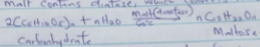 malt contains diastase, which
2(C₆H₁₀O₅)ₙ + nH₂O malt(diastase) nC₁₂H₂₂O₁₁
60°C
Carbohydrate Maltose